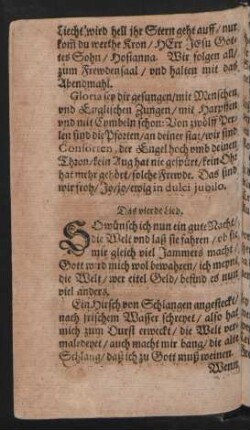 Liecht wird hell ihr Stern geht auff / nur
kom du werthe Kron / HErr Jesu Got-
tes Sohn / Hosianna. Wir folgen all /
zum Frewdensaal / vnd halten mit das
Abendmahl.
Gloria sey dir gesungen / mit Menschen
vnd Englischen Zungen / mit Harpffen
vnd mit Cymbeln schon: Von zwölff Per-
len sind die Pforten / an deiner stat / wir sind
Consorten der Engel hoch vmb deinen
Thron / kein Aug hat nie gespürt / kein Ohr
hat mehr gehört / solche Frewde. Das sind
wir froh / Jo / jo / ewig in dulci jubilo.
Das vierde Lied.
SO wünsch ich nun ein gute Nacht /
die Welt vnd laß sie fahren / ob sie
mir gleich viel Jammers macht /
Gott wird mich wol bewahren / ich meynt
die Welt / wer eitel Geld / befind es nun
viel anders.
Ein Hirsch von Schlangen angesteckt /
nach frischem Wasser schreyet / also hat
mich zum Durst erweckt / die Welt ver-
maledeyet / auch macht mir bang / die alte
Schlang / daß ich zu Gott muß weinen.
Wenn